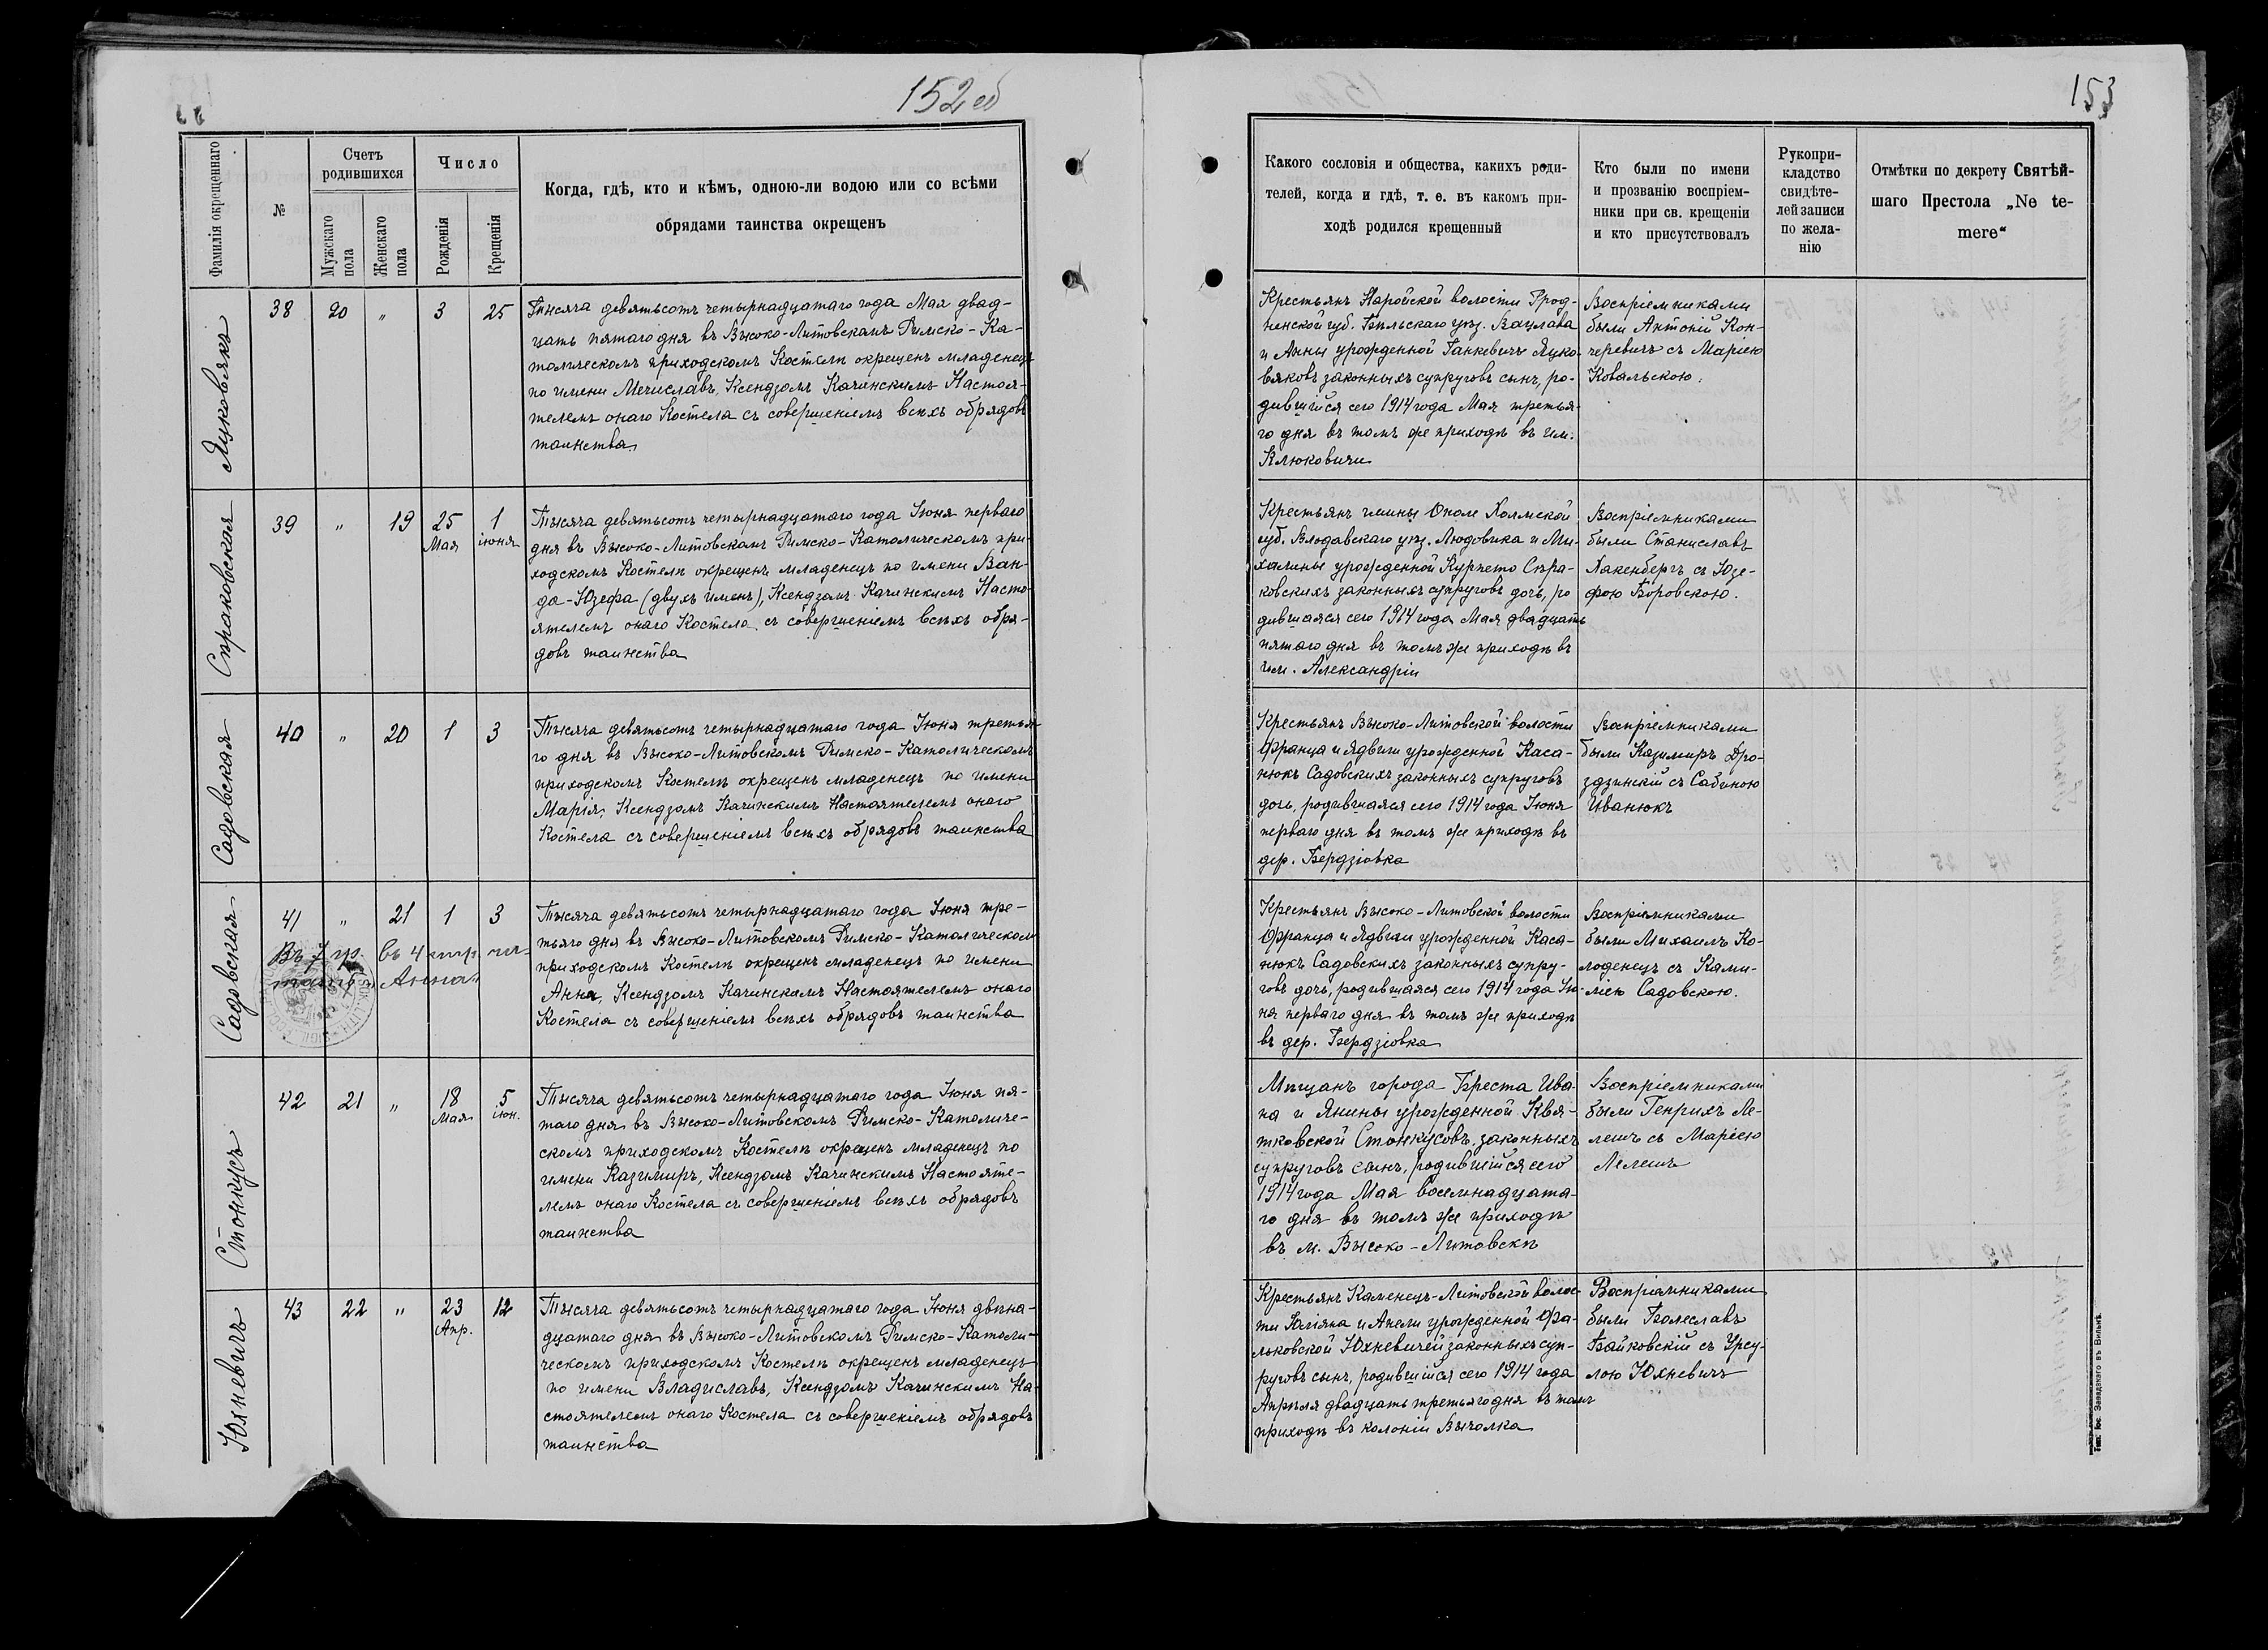 152об
Фамилія окрещеннаго
№
Счетъ родившихся
Мужскаго пола
Женскаго пола
Число
Рожденія
Крещенія
Когда, гдѣ, кто и кѣмъ, одною-ли водою или со всѣми
обрядами таинства окрещенъ
Яцковякъ
38 20 „ 3 25
Тысяча девятьсотъ четырнадцатаго года Мая двад-
цать пятаго дня въ Высоко-Литовскомъ Римско-Ка-
толическомъ приходскомъ Костелѣ окрещенъ младенецъ
по имени Мечиславъ, Ксендзомъ Качинскимъ Настоя-
телемъ онаго Костела съ совершеніемъ всѣхъ обрядовъ
таинства
Спраковская
39 „ 19 25 Мая 1 іюня
Тысяча девятьсотъ четырнадцатаго года Іюня перваго
дня въ Высоко-Литовскомъ Римско-Католическомъ при-
ходскомъ Костелѣ окрещенъ младенецъ по имени Ван-
да-Юзефа (двухъ именъ), Ксендзомъ Качинскимъ Насто-
ятелемъ онаго Костела съ совершеніемъ всѣхъ обря-
довъ таинства
Садовская
40 „ 20 1 3
Тысяча девятьсотъ четырнадцатаго года Іюня третья-
го дня въ Высоко-Литовскомъ Римско-Католическомъ
приходскомъ Костелѣ окрещенъ младенецъ по имени
Марія, Ксендзомъ Качинскимъ Настоятелемъ онаго
Костела съ совершеніемъ всѣхъ обрядовъ таинства
Садовская
41 „ 21 1 3
Въ 7 гр. въ 4 стр.
„Анна“
Тысяча девятьсотъ четырнадцатаго года Іюня тре-
тьяго дня въ Высоко-Литовскомъ Римско-Католическомъ
приходскомъ Костелѣ окрещенъ младенецъ по имени
Анна, Ксендзомъ Качинскимъ Настоятелемъ онаго
Костела съ совершеніемъ всѣхъ обрядовъ таинства
Стонкусъ
42 21 „ 18 Мая 5 іюн.
Тысяча девятьсотъ четырнадцатаго года Іюня пя-
таго дня въ Высоко-Литовскомъ Римско-Католиче-
скомъ приходскомъ Костелѣ окрещенъ младенецъ по
имени Казимиръ, Ксендзомъ Качинскимъ Настояте-
лемъ онаго Костела съ совершеніемъ всѣхъ обрядовъ
таинства
Юхневичъ
43 22 „ 23 Апр. 12
Тысяча девятьсотъ четырнадцатаго года Іюня двѣна-
дцатаго дня въ Высоко-Литовскомъ Римско-Католи-
ческомъ приходскомъ Костелѣ окрещенъ младенецъ
по имени Владиславъ, Ксендзомъ Качинскимъ На-
стоятелемъ онаго Костела съ совершеніемъ обрядовъ
таинства
153
Какого сословія и общества, какихъ роди-
телей, когда и гдѣ, т. е. въ какомъ при-
ходѣ родился крещенный
Кто были по имени
и прозванію воспріем-
ники при св. крещеніи
и кто присутствовалъ
Рукопри-
кладство
свидѣте-
лей записи
по жела-
нію
Отмѣтки по декрету Святѣй-
шаго Престола „Ne te-
mere“
Крестьянъ Наройской волости Грод-
ненской губ. Бѣльскаго уѣз. Вацлава
и Анны урожденной Ганкевичъ Яцко-
вяковъ законныхъ супруговъ сынъ, ро-
дившійся сего 1914 года Мая третья-
го дня въ томъ же приходѣ въ им.
Клюковичи
Воспріемниками
были Антоній Кон-
черевичъ съ Маріею
Ковальскою.
Крестьянъ гмины Ополе Холмской
губ. Влодавскаго уѣз. Людовика и Ми-
халины урожденной Курпето Спра-
ковскихъ законныхъ супруговъ дочь, ро
дившаяся сего 1914 года Мая двадцать
пятаго дня въ томъ же приходѣ въ
им. Александріи
Воспріемниками
были Станиславъ
Лакенбергъ съ Юзе-
фою Боровскою.
Крестьянъ Высоко-Литовской волости
Франца и Ядвиги урожденной Каса-
нюкъ Садовскихъ законныхъ супруговъ
дочь, родившаяся сего 1914 года Іюня
перваго дня въ томъ же приходѣ въ
дер. Бердзіовка
Воспріемниками
были Казимиръ Дро-
здзинскій съ Сабиною
Иванюкъ
Крестьянъ Высоко-Литовской волости
Франца и Ядвиги урожденной Каса-
нюкъ Садовскихъ законныхъ супру-
говъ дочь, родившаяся сего 1914 года Ію-
ня перваго дня въ томъ же приходѣ
въ дер. Бердзіовка
Воспріемниками
были Михаилъ Ко-
лоденецъ съ Ками-
ліею Садовскою.
Мѣщанъ города Бреста Ива-
на и Янины урожденной Квя-
тковской Стонкусовъ законныхъ
супруговъ сынъ, родившійся сего
1914 года Мая восемнадцата-
го дня въ томъ же приходѣ
въ м. Высоко-Литовскѣ
Воспріемниками
были Генрихъ Ле-
лешъ съ Маріею
Лелешъ
Крестьянъ Каменецъ-Литовской волос-
ти Юліяна и Анели урожденной Фа-
льковской Юхневичей законныхъ суп-
руговъ сынъ, родившійся сего 1914 года
Апрѣля двадцать третьяго дня въ томъ
приходѣ въ колоніи Вычолка
Воспріемниками
были Болеславъ
Байковскій съ Урсу-
лою Юхневичъ
Тип. Іос. Завадзкаго въ Вильнѣ.